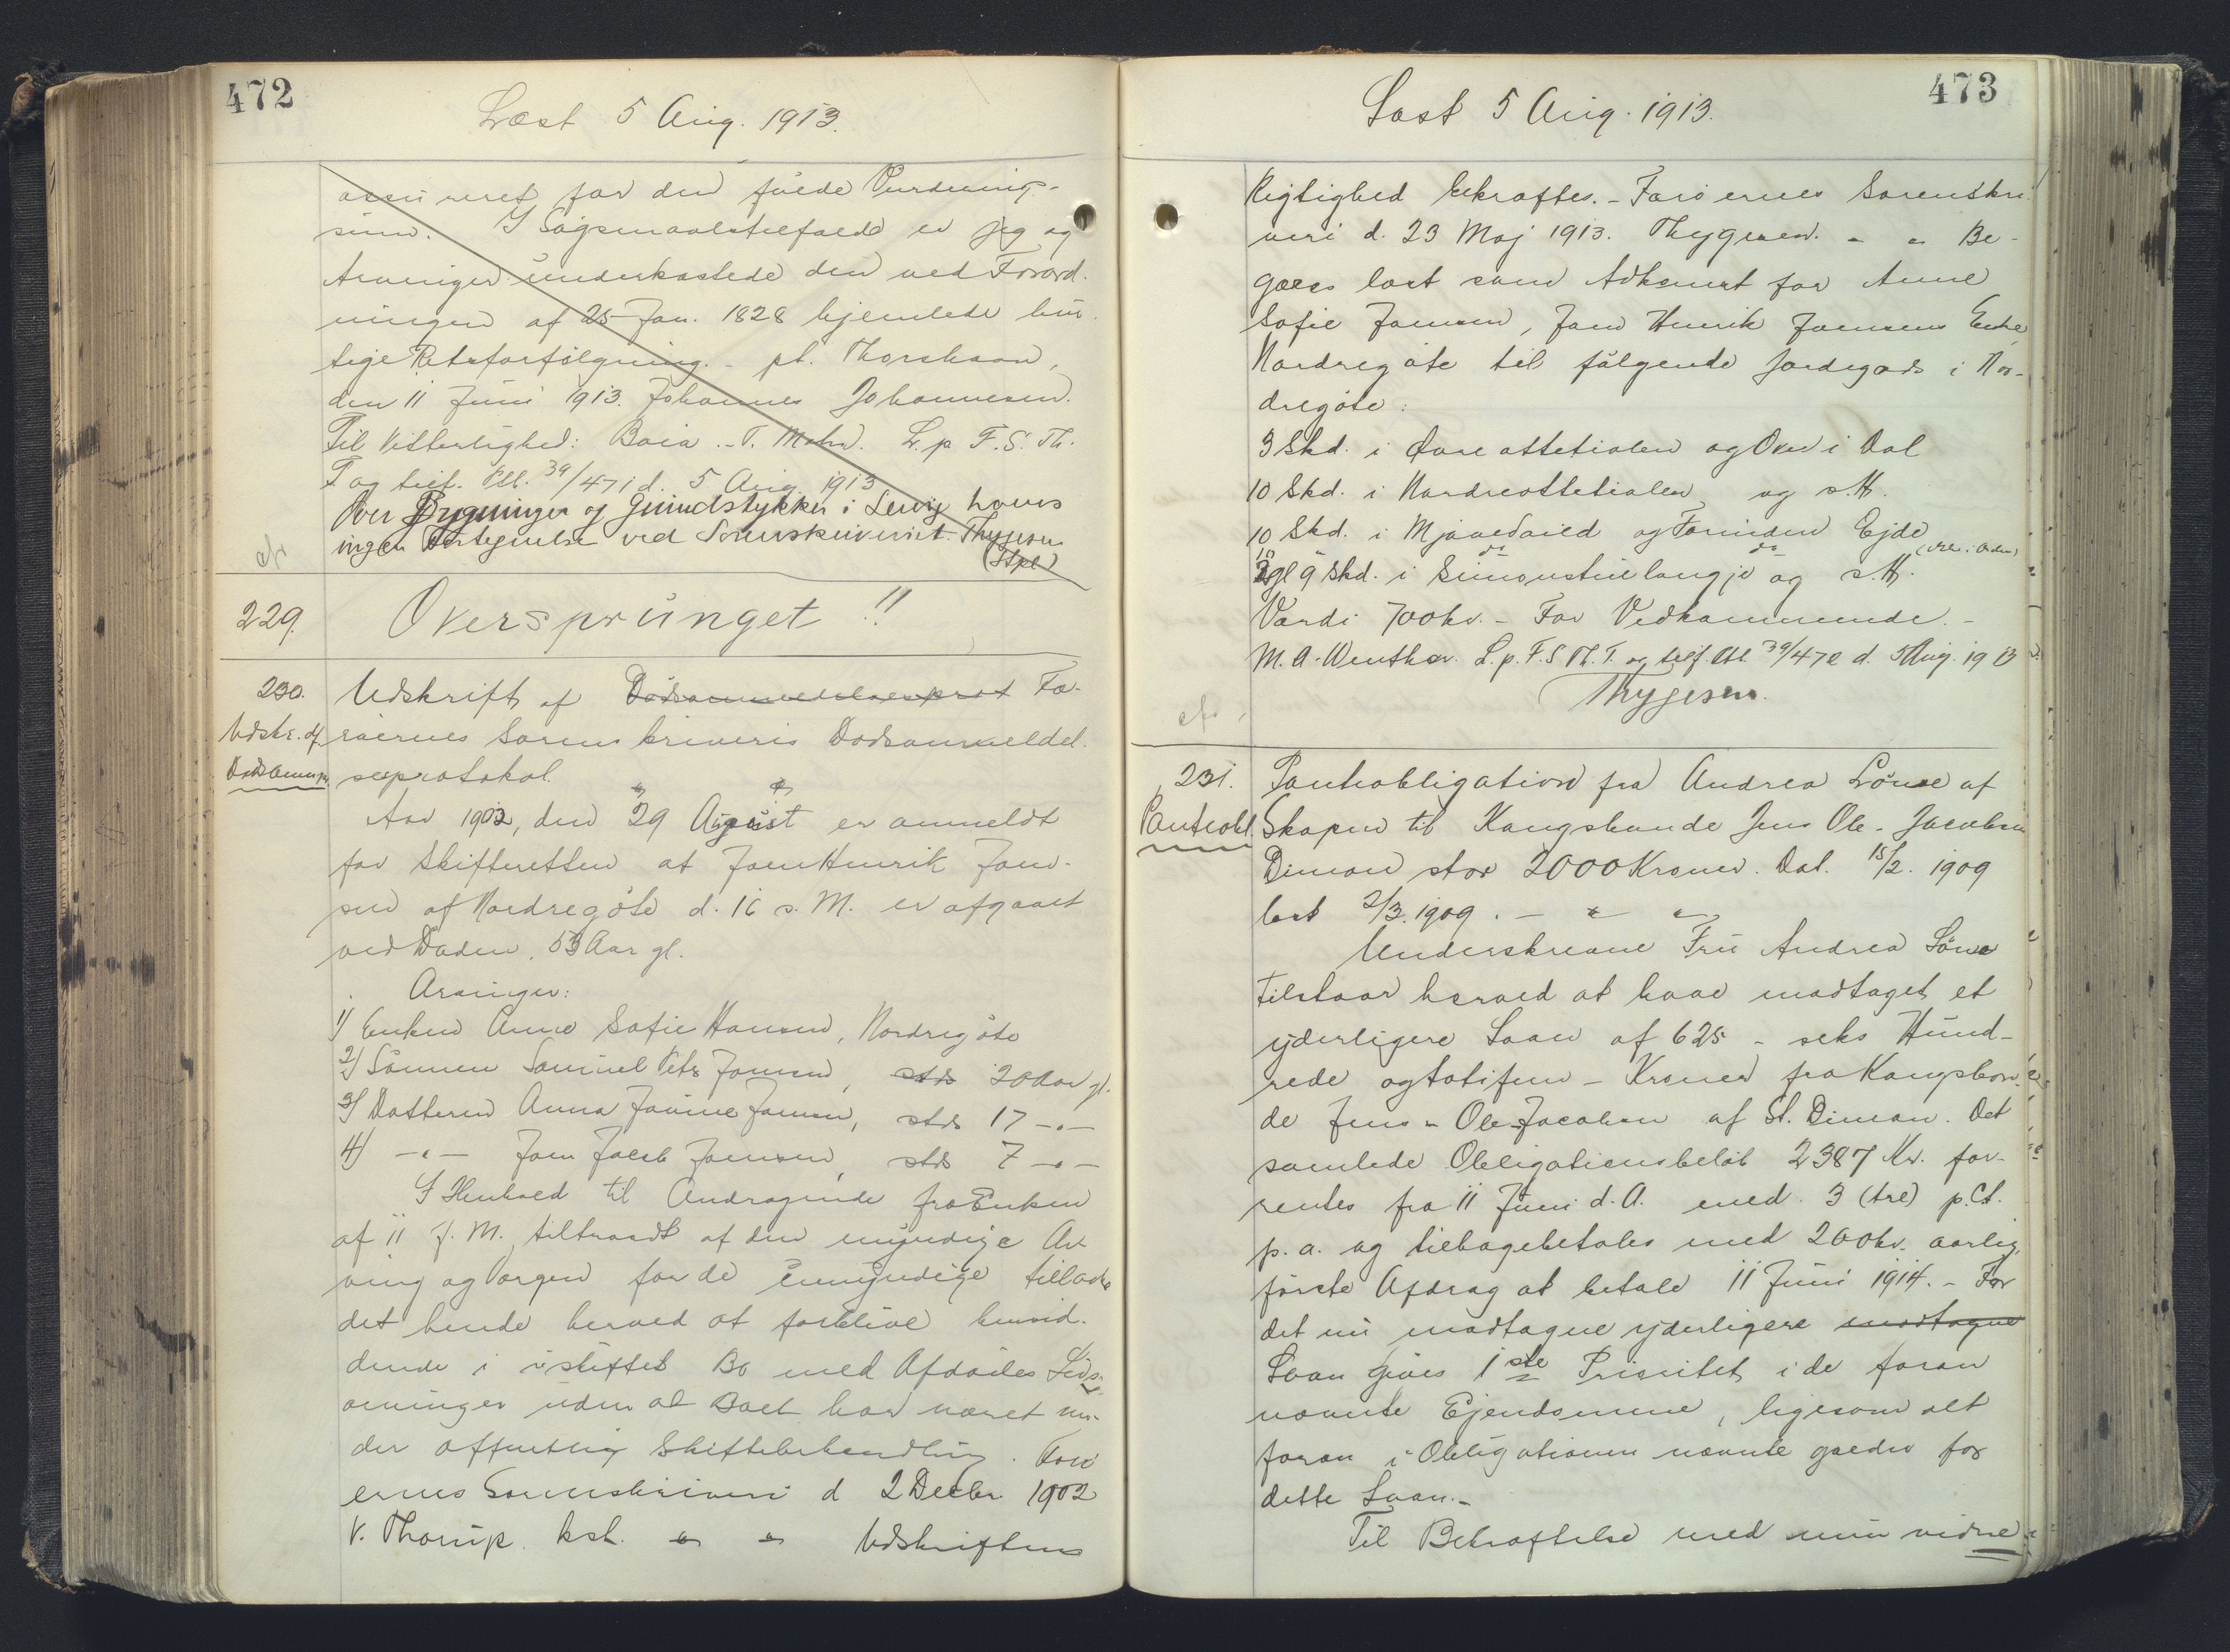 472
Læst 5 Aug. 1913.
assureret for den fulde Vurderings-
sum. I Søgsmaalstilfælde er jeg og
Arvinger underkastede den ved Forord-
ningen af 25 Jan. 1828 hjemlede hur-
tige Retsforfølgning. - pt. Thorshavn,
den 11 Juni 1913. Johannes Johannesen.
Til Vitterlighed: T. Mohr. L. p. F. S. Th.
T. og tilf. Ptl. 39/471 d. 5 Aug. 1913
Over Bygninger og Grundstykker i Lervig haves
ingen Fortegnelse ved Sorenskriveriet. Thygesen
(Stpl)
229. Oversprunget!!
230. Udskrift af Dødsanmeldelsesprot Fæ-
Udskr. af røernes Sorenskriveris Dødsanmeldel-
Dødsanmpr. sesprotokol.
Aar 1902, den 29 August er anmeldt
for Skifteretten at Joen Henrik Joen-
sen af Nordregøte d. 16 s. M. er afgaaet
ved Døden, 53 Aar gl.
Arvinger:
1) Enken Anne Sofie Hansen, Nordregøte
2) Sønnen Samuel Petr Joensen, stds 20 Aar gl.
3) Datteren Anna Joensen, stds 17 -"-
4) -"- Joen Jacob Joensen, stds 7 -"-
I Henhold til Andragende fra Enken
af 11 f. M. tiltraadt af den myndige Ar-
ving og Værgen for de umyndige tillades
det hende herved at forblive hensid-
dende i uskiftet Bo med Afdødes Livs-
arvinger uden at Boet har været un-
der offentlig Skiftebehandling. Færø
ernes Sorenskriveri d 2 Decbr. 1902
V. Thorup. kst. " " Udskriftens
473
Læst 5 Aug. 1913.
Rigtighed bekræftes. - Færøernes Sorenskri-
veri d. 23 Maj 1913. Thygesen. " " Be-
gæres læst som Adkomst for Anne
Sofie Joensen, Joen Henrik Joensens Enke
Nordregøte til følgende Jordegods i Nor-
dregøte:
3 Skd. i og Over i Dal
10 Skd. i og s. H.
10 Skd. i og Ejde
gl 9 Skd. i og s. H.
Værdi 700 kr. - For Vedkommende. -
M. A. Winther. L. p. F. S. Th. T. og tilf. Ptl 39/472 d. 5 Aug. 1913
Thygesen.
231. Panteobligation fra Andrea Lønne af
Panteobl. Skopen til Kongsbonde Jens Ole-Jacobsen
Dimon stor 2000 Kroner. Dat. 15/2. 1909
læst 2/3. 1909. - " "
Underskrevne Fru Andrea Lønne
tilstaar herved at have modtaget et
yderligere Laan af 625 - seks Hund-
rede og totifem - Kroner fra Kongsbon-
de Jens-Ole-Jacobsen af St. Dimon. Det
samlede Obligationsbeløb 2387 Kr. for-
rentes fra 11 Juni d. A. med 3 (tre) p. Ct.
p. a. og tilbagebetales med 200 kr. aarlig,
første Afdrag at betale 11 Juni 1914. - For
det nu modtagne yderligere modtagne
Laan gives 1ste Prioritet i de foran
nævnte Ejendomme, ligesom alt
foran i Obligationen nævnte gælder for
dette Laan. -
Til Bekræftelse med min vidne-